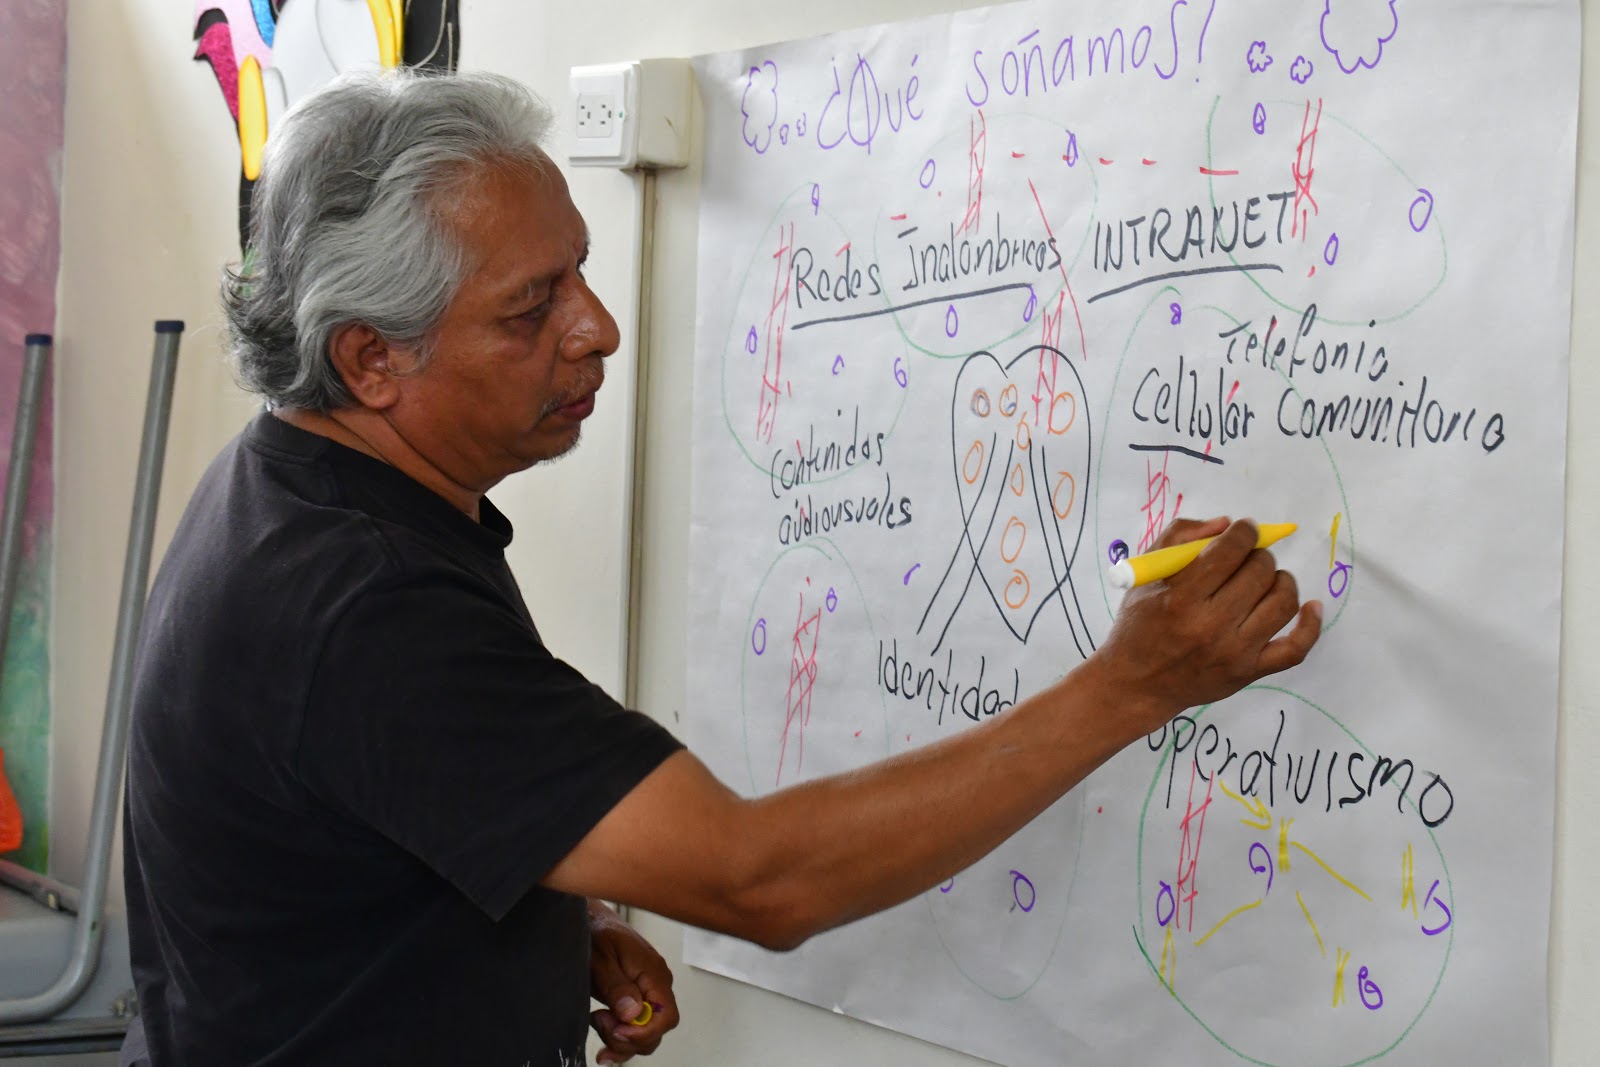 ¿Qué soñamos?
Redes Inalámbricas INTRANET
Telefonía
Cellular Comunitaria
Contenidos
audiovisuales
Identidad
operativismo